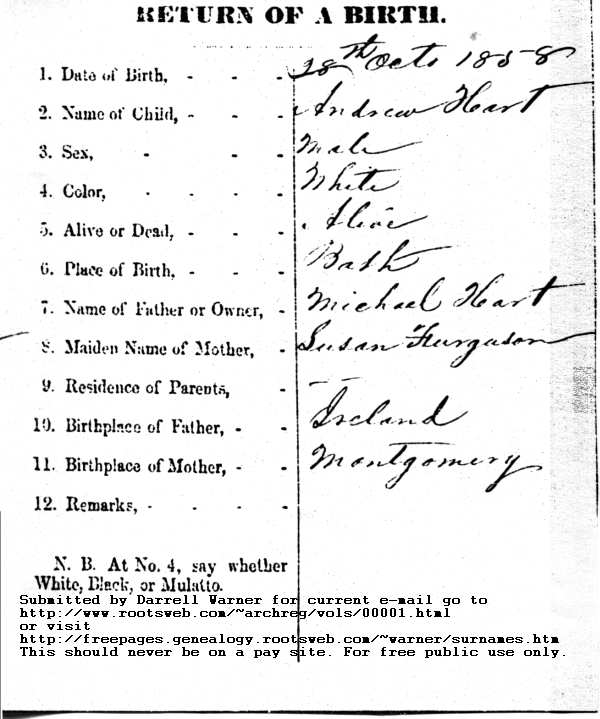 RETURN OF A BIRTH.
1. Date of Birth, - - - 28th Octo 1858
2. Name of Child, - - - Andrew Hart
3. Sex, - - - Male
4. Color, - - - - White
5. Alive or Dead, - - - Alive
6. Place of Birth, - - - Bath
7. Name of Father or Owner, - Michael Hart
8. Maiden Name of Mother, - Susan Furguson
9. Residence of Parents, - - -
10. Birthplace of Father, - - Ireland
11. Birthplace of Mother, - - Montgomery
12. Remarks, - - - -
N. B. At No. 4, say whether
White, Black, or Mulatto.
Submitted by Darrell Warner for current e-mail go to
http://www.rootsweb.com/~archreg/vols/00001.html
or visit
http://freepages.genealogy.rootsweb.com/~warner/surnames.htm
This should never be on a pay site. For free public use only.